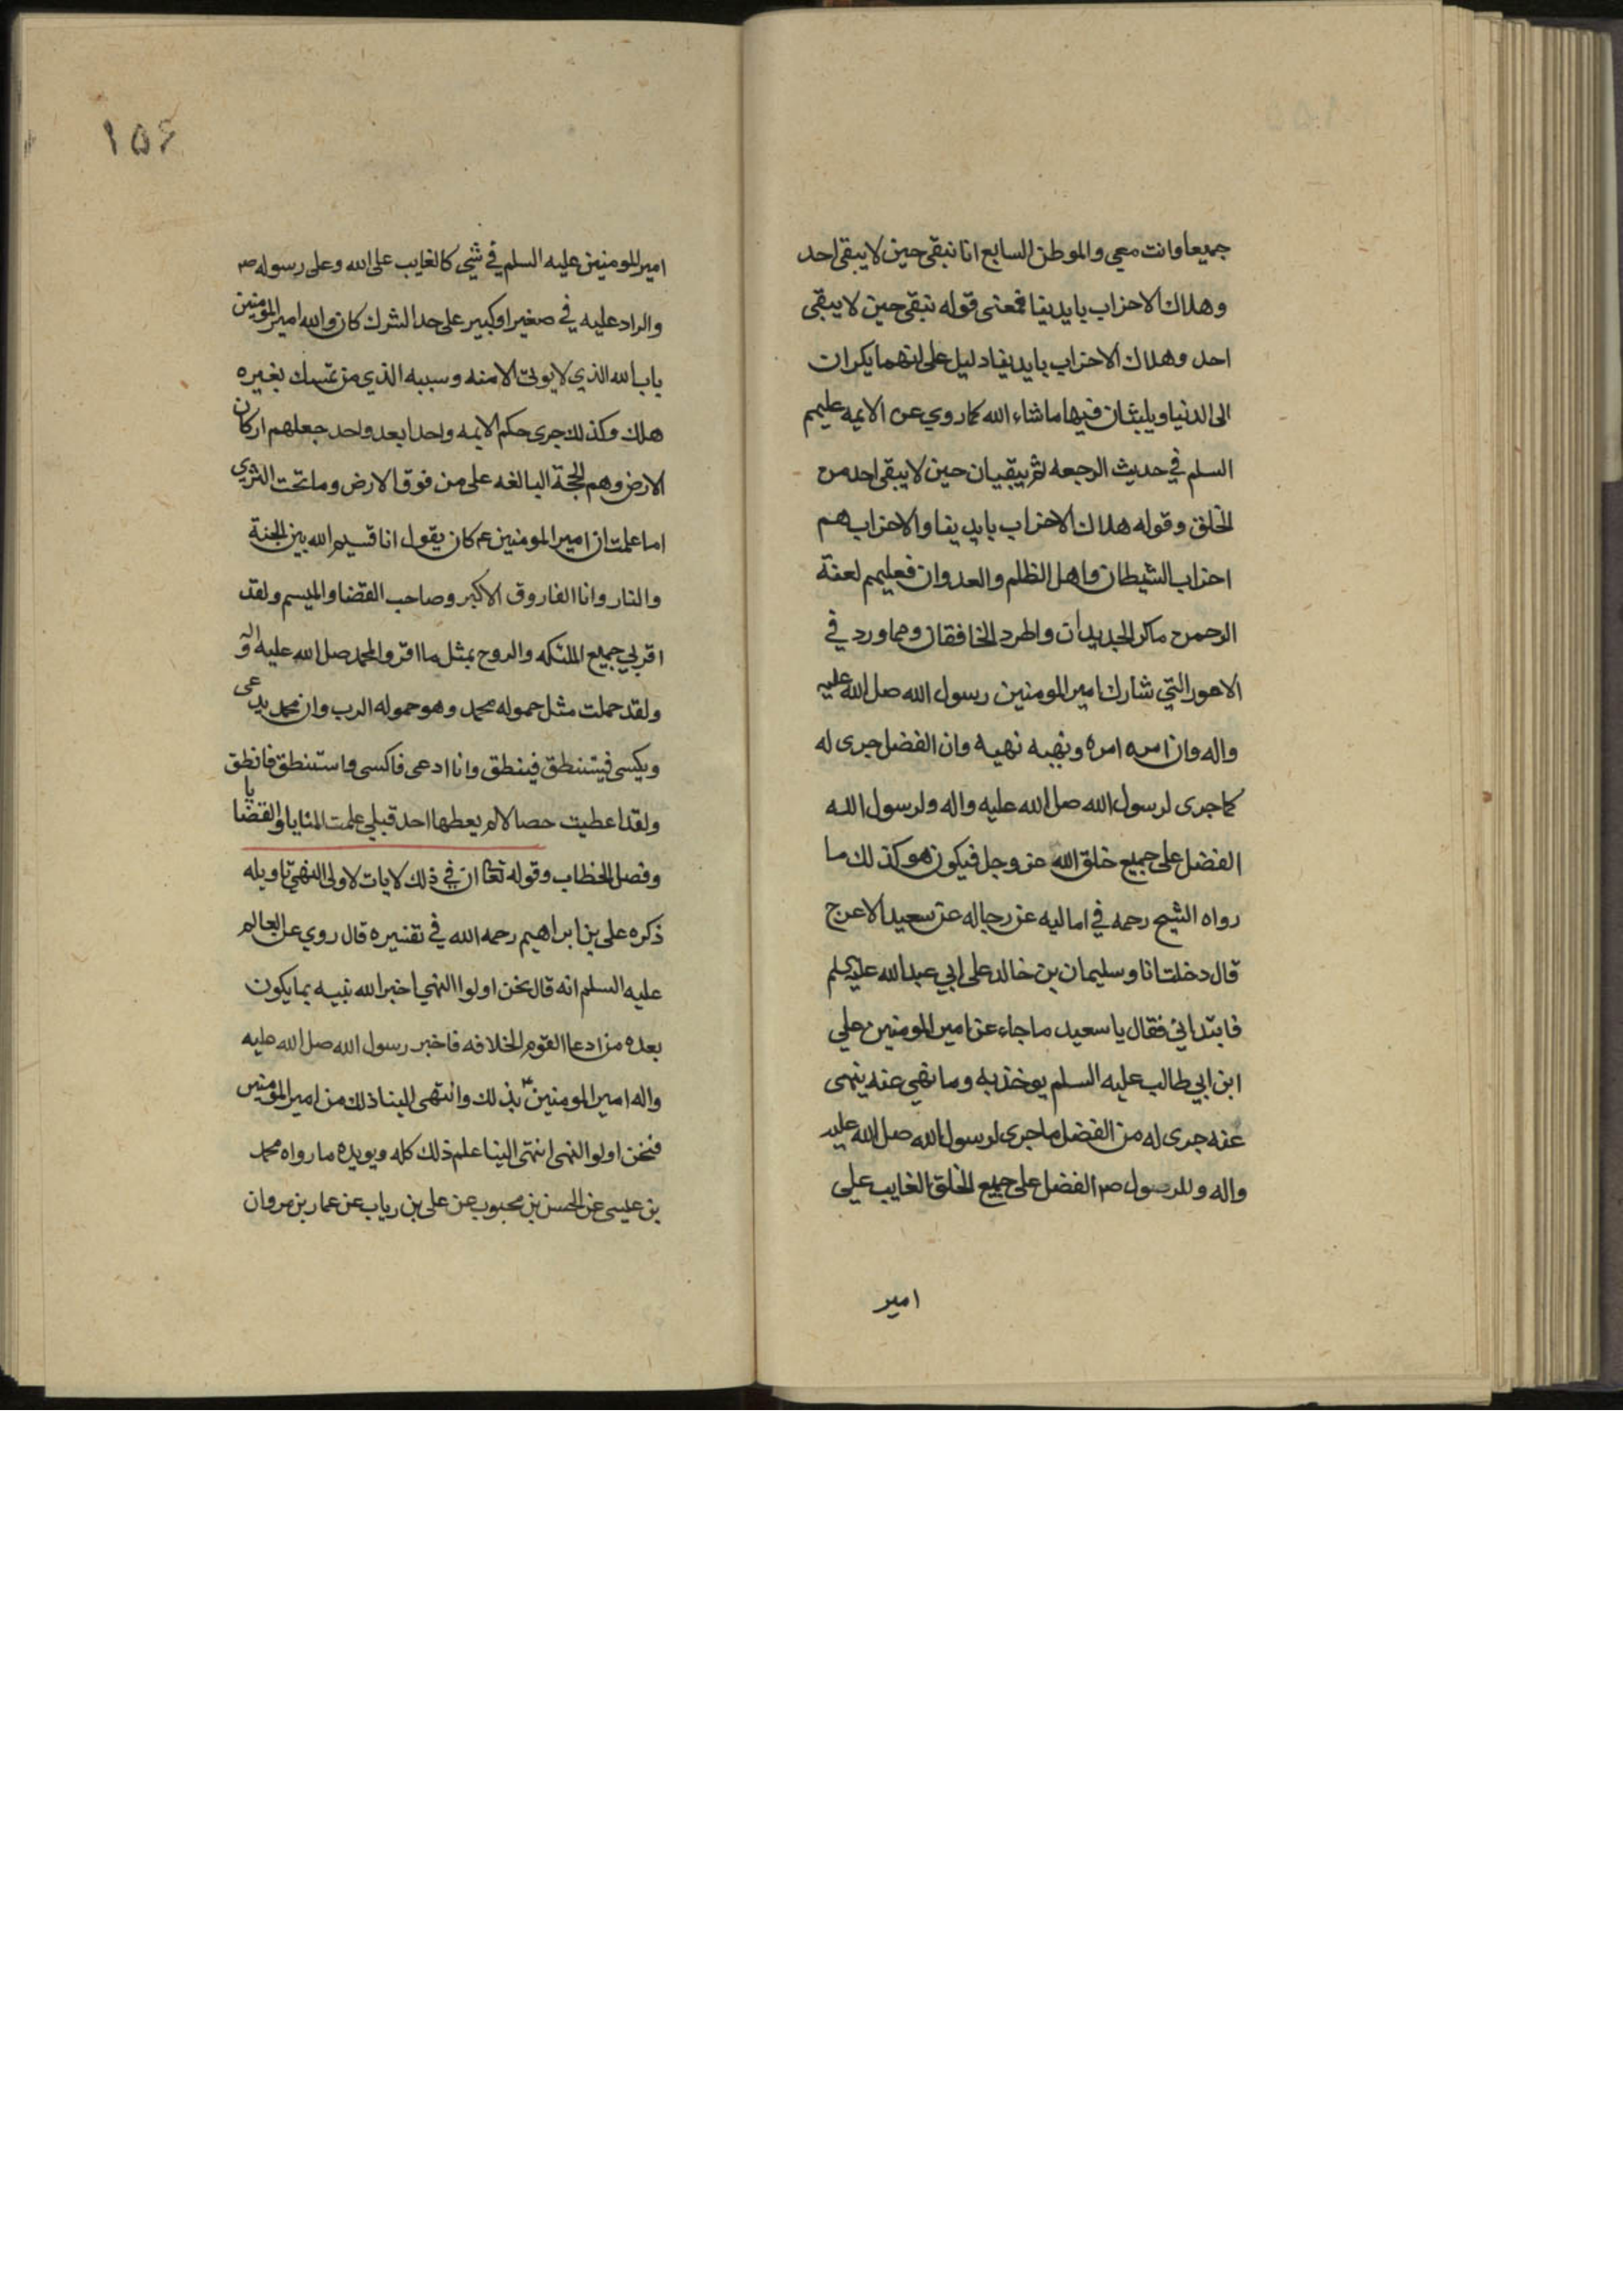 جميعا وانت معي والموطن السابع انا نبقى حين لا يبقى احد
وهلاك الاحزاب بايدينا فمعنى قوله نبقى حين لا يبقى
احد وهلاك الاحزاب بايدينا دليل على انهما يكران
الى الدنيا ويلبثان فيها ما شاء الله كما روي عن الايمه عليهم
السلم في حديث الرجعه ثم يبقيان حين لا يبقى احد من
الخلق وقوله هلاك الاحزاب بايدينا والاحزاب هم
احزاب الشيطان واهل الظلم والعدوان فعليهم لعنة
الرحمن ما كر الجديدان واطرد الخافقان ومما ورد في
الامور التي شارك امير المومنين رسول الله صل الله عليه
واله وان امره امره ونهيه نهيه وان الفضل جرى له
كما جرى لرسول الله صل الله عليه واله ولرسول الله
الفضل على جميع خلق الله عز وجل فيكون هو كذلك ما
رواه الشيخ رحمه في اماليه عن رجاله عن سعيد الاعرج
قال دخلت انا وسليمان بن خالد على ابي عبد الله عليه السلم
فابتداني فقال يا سعيد ما جاء عن امير المومنين علي
ابن ابي طالب عليه السلم يوخذ به وما نهي عنه ينهى
عنه جرى له من الفضل ما جرى لرسول الله صل الله عليه
واله وللرسول ص الفضل على جميع الخلق الغايب على
امير
١٥۶
امير المومنين عليه السلم في شي كالغايب على الله وعلى رسوله ص
والراد عليه في صغير او كبير على حد الشرك كان والله امير المومنين
باب الله الذي لا يوتى الا منه وسبيه الذي من تمسك بغيره
هلك وكذلك جرى حكم الايمه واحدا بعد واحد جعلهم اركان
الارض وهم الحجة البالغه على من فوق الارض وما تحت الثرى
اما علمت ان امير المومنين ع كان يقول انا قسيم الله بين الجنة
والنار وانا الفاروق الاكبر وصاحب القضا والميسم ولقد
اقر لي جميع الملئكه والروح بمثل ما اقروا لمحمد صل الله عليه واله
ولقد حملت مثل حموله محمد وهو حموله الرب وان محمد يدعى
ويكسى فيستنطق فينطق وانا ادعى فاكسى واستنطق فانطق
ولقد اعطيت خصالا لم يعطها احد قبلي علمت المنايا والقضايا
وفصل الخطاب وقوله تعا ان في ذلك لايات لاولى النهى تاويله
ذكره علي بن ابراهيم رحمه الله في تفسيره قال روي عن العالم
عليه السلم انه قال نحن اولوا النهي اخبر الله نبيه بما يكون
بعده من ادعا القوم الخلافه فاخبر رسول الله صل الله عليه
واله امير المومنين ع بذلك وانتهى الينا ذلك من امير المومنين
فنحن اولو النهى انتهى الينا علم ذلك كله ويويده ما رواه محمد
بن عيسى عن الحسن بن محبوب عن علي بن رياب عن عمار بن مروان